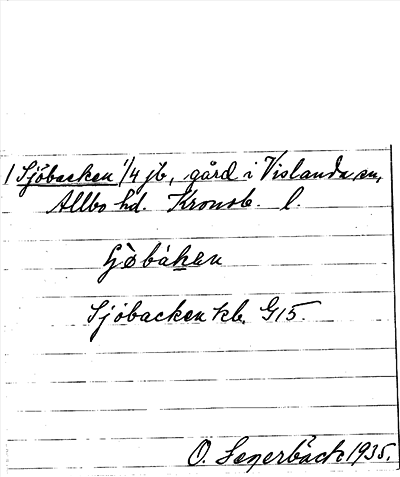 1 Sjöbacken 1/4 jb, gård i Vislanda sn,
Allbo hd. Kronob. l.
Sjöbacken kb. G15.
O. 1935.